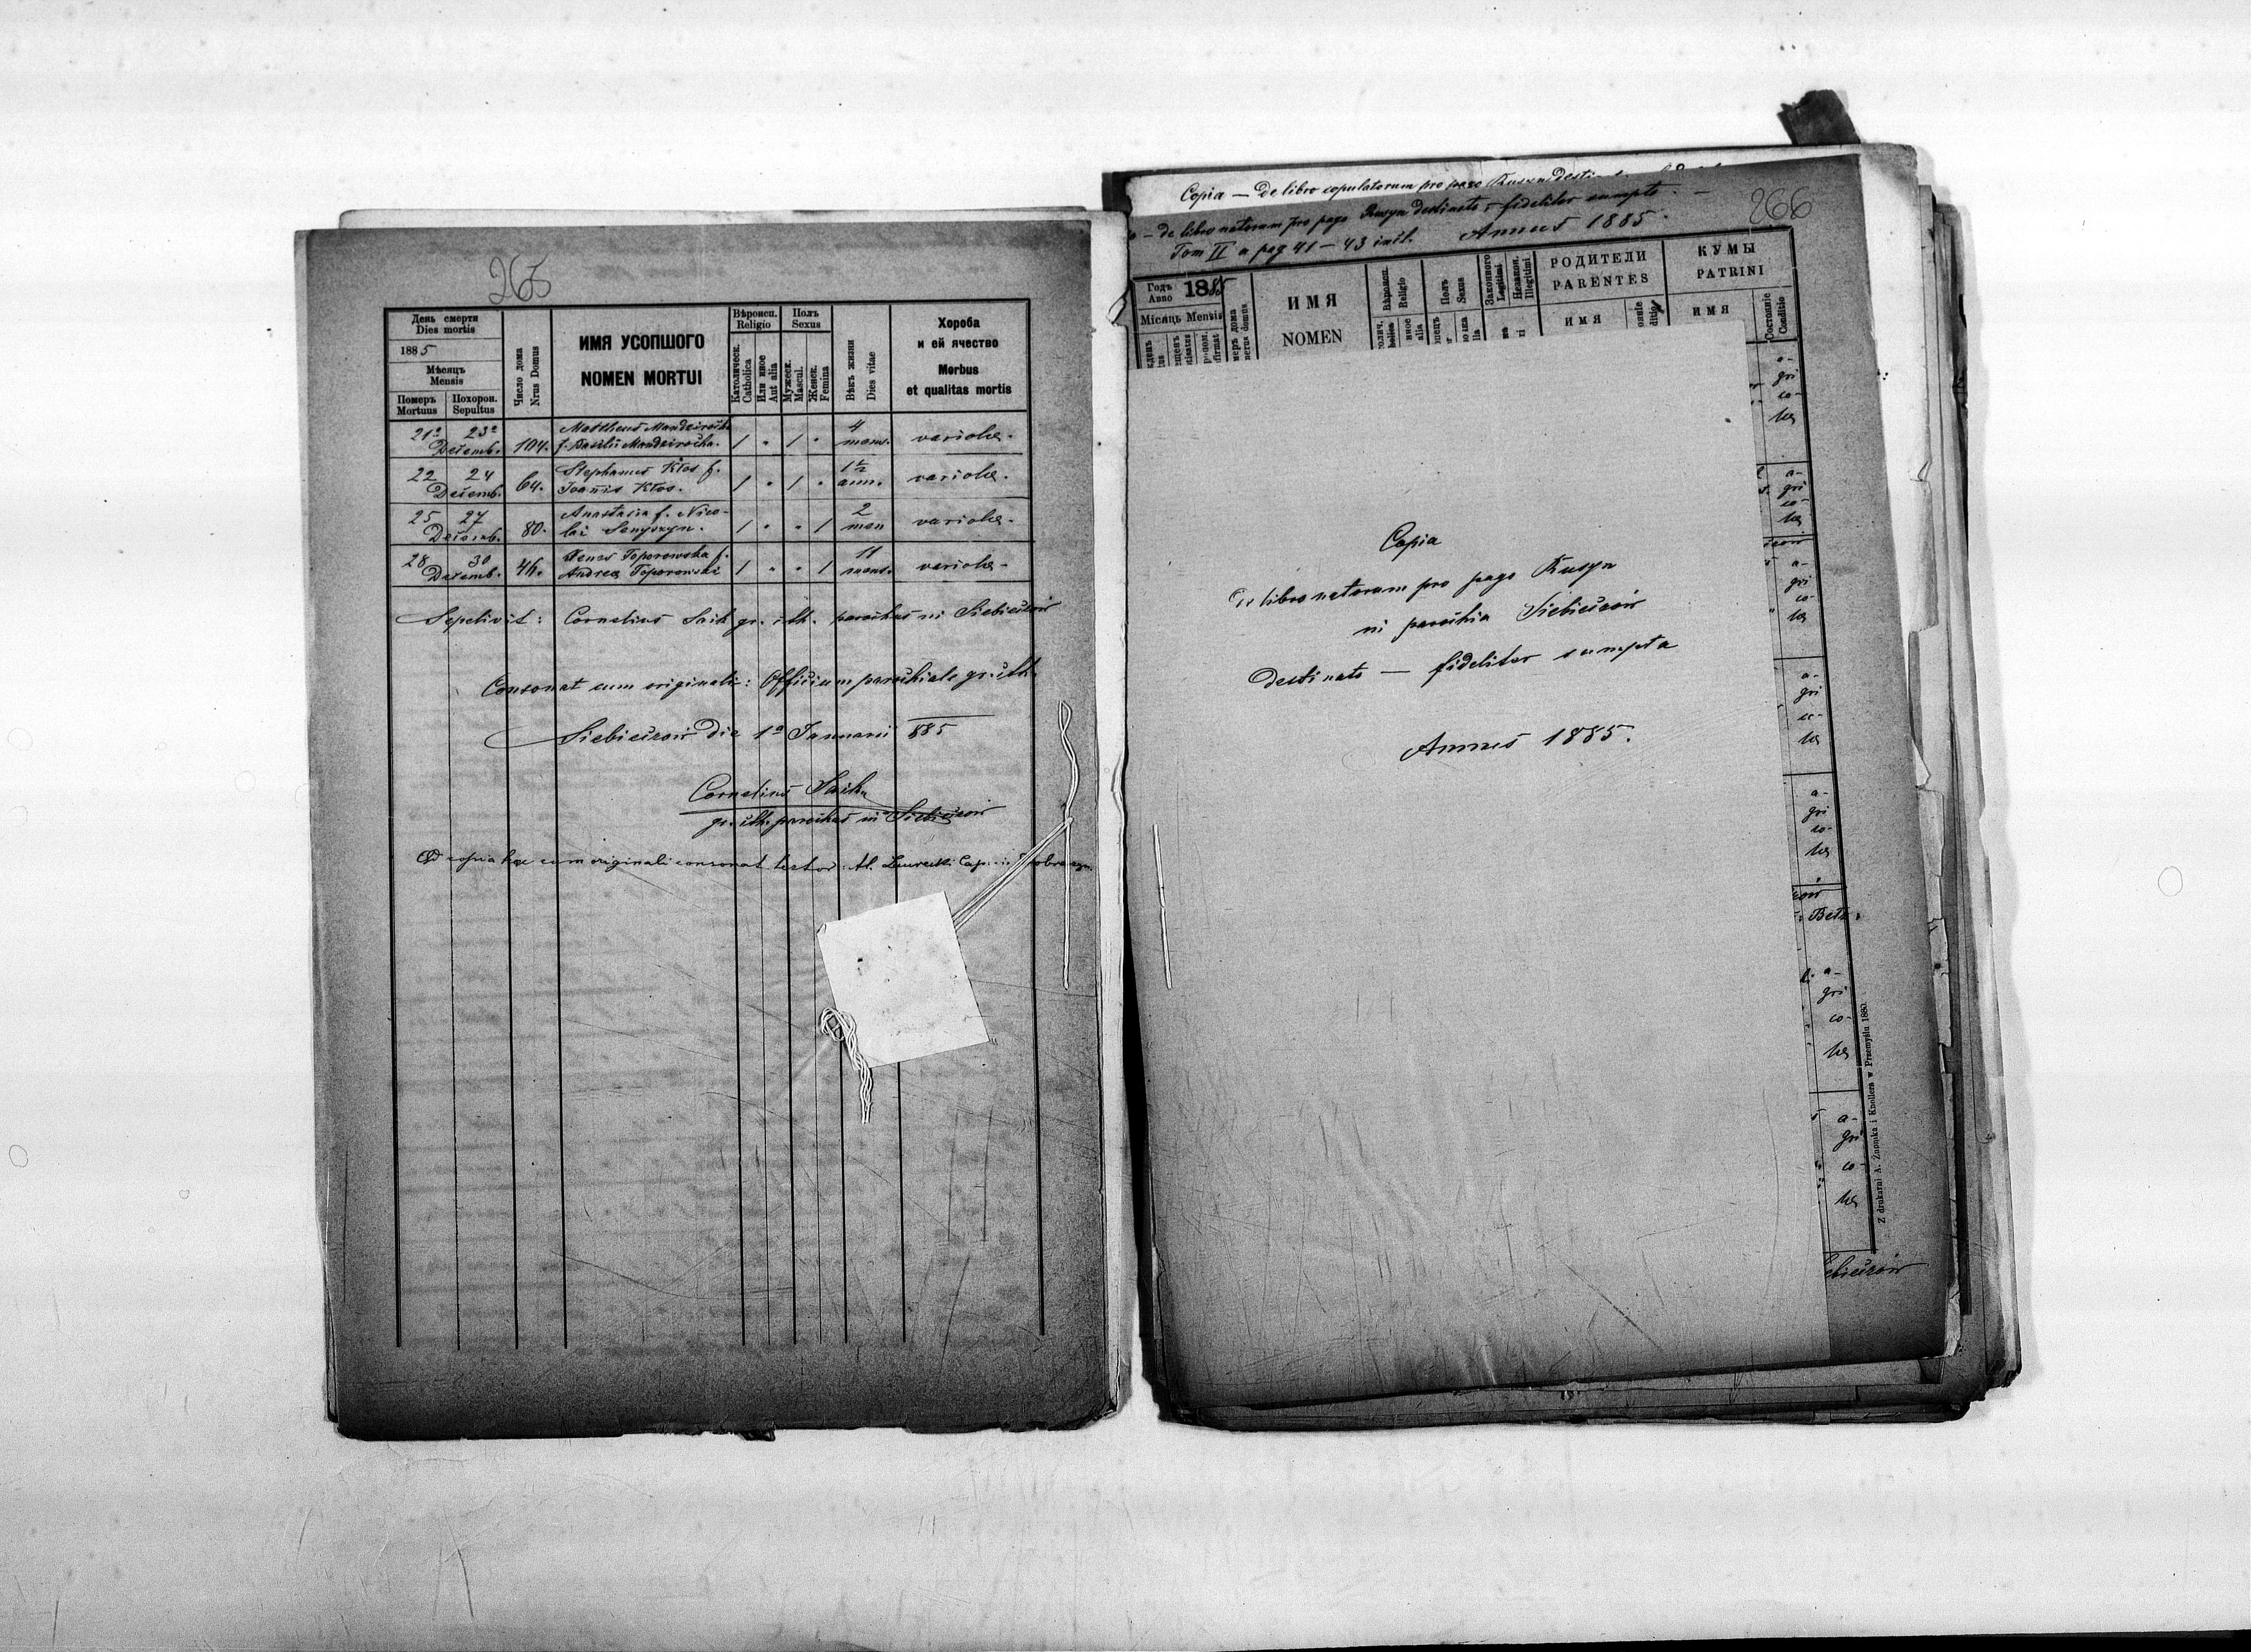 265
День смерти
Dies mortis
1885
Мѣсяцъ
Mensis
Померъ
Mortuus
Похорон.
Sepultus
Число дома
Nrus Domus
ИМЯ УСОПШОГО
NOMEN MORTUI
Вѣроисп.
Religio
Католическ.
Catholica
Или иное
Aut alia
Полъ
Sexus
Мужеск.
Mascul.
Женск.
Femina
Вѣкъ жизни
Dies vitae
Хороба
и ей ячество
Morbus
et qualitas mortis
21a 23a Decemb. 104. Mattheus
f. Basilii 1 " 1 " 4 mens. variolae.
22 24 Decemb. 64. Stephanus Kłos f.
Joannis Kłos. 1 " 1 " 1 1/2 ann. variolae.
25 27 Decemb. 80. Anastasia f. Nico-
lai Senyszyn. 1 " " 1 2 men variolae.
28 30 Decemb. 46. Toporowska f.
Andreae Toporowski 1 " " 1 11 mens. variolae.
Sepelivit: Cornelius gr. cth. parochus in Siebieczow
Consonat cum originali: Officium parochiale gr. cth.
Siebieczow die 1a Januarii 885
Cornelius
gr. cth. parochus in Siebieczow
copia haec cum originali consonat testor
266
Copia — De libro copulatorum pro pago Rusyn
de libro natorum pro pago Rusyn destinato fideliter sumpta. —
Tom II a pag 41 — 43 incl. Annus 1885.
Годъ
Anno
1885
Мѣсяцъ Mensis
ИМЯ
NOMEN
Вѣроисп.
Religio
Полъ
Sexus
Законного
Legitimi
Незакон.
Illegitimi
РОДИТЕЛИ
PARENTES
ИМЯ
КУМЫ
PATRINI
ИМЯ
Состояніе
Conditio
Copia
De libro natorum pro pago Rusyn
in parochia Siebieczow
destinato — fideliter sumpta
Annus 1885.
a-
gri
co-
lae
a-
gri
co-
lae
a-
gri
co-
lae
a-
gri
co-
lae
a-
gri
co-
lae
a-
gri
co-
lae
a-
gri
co-
lae
Z drukarni A. Żnomka i Knollera w Przemyślu 1880.